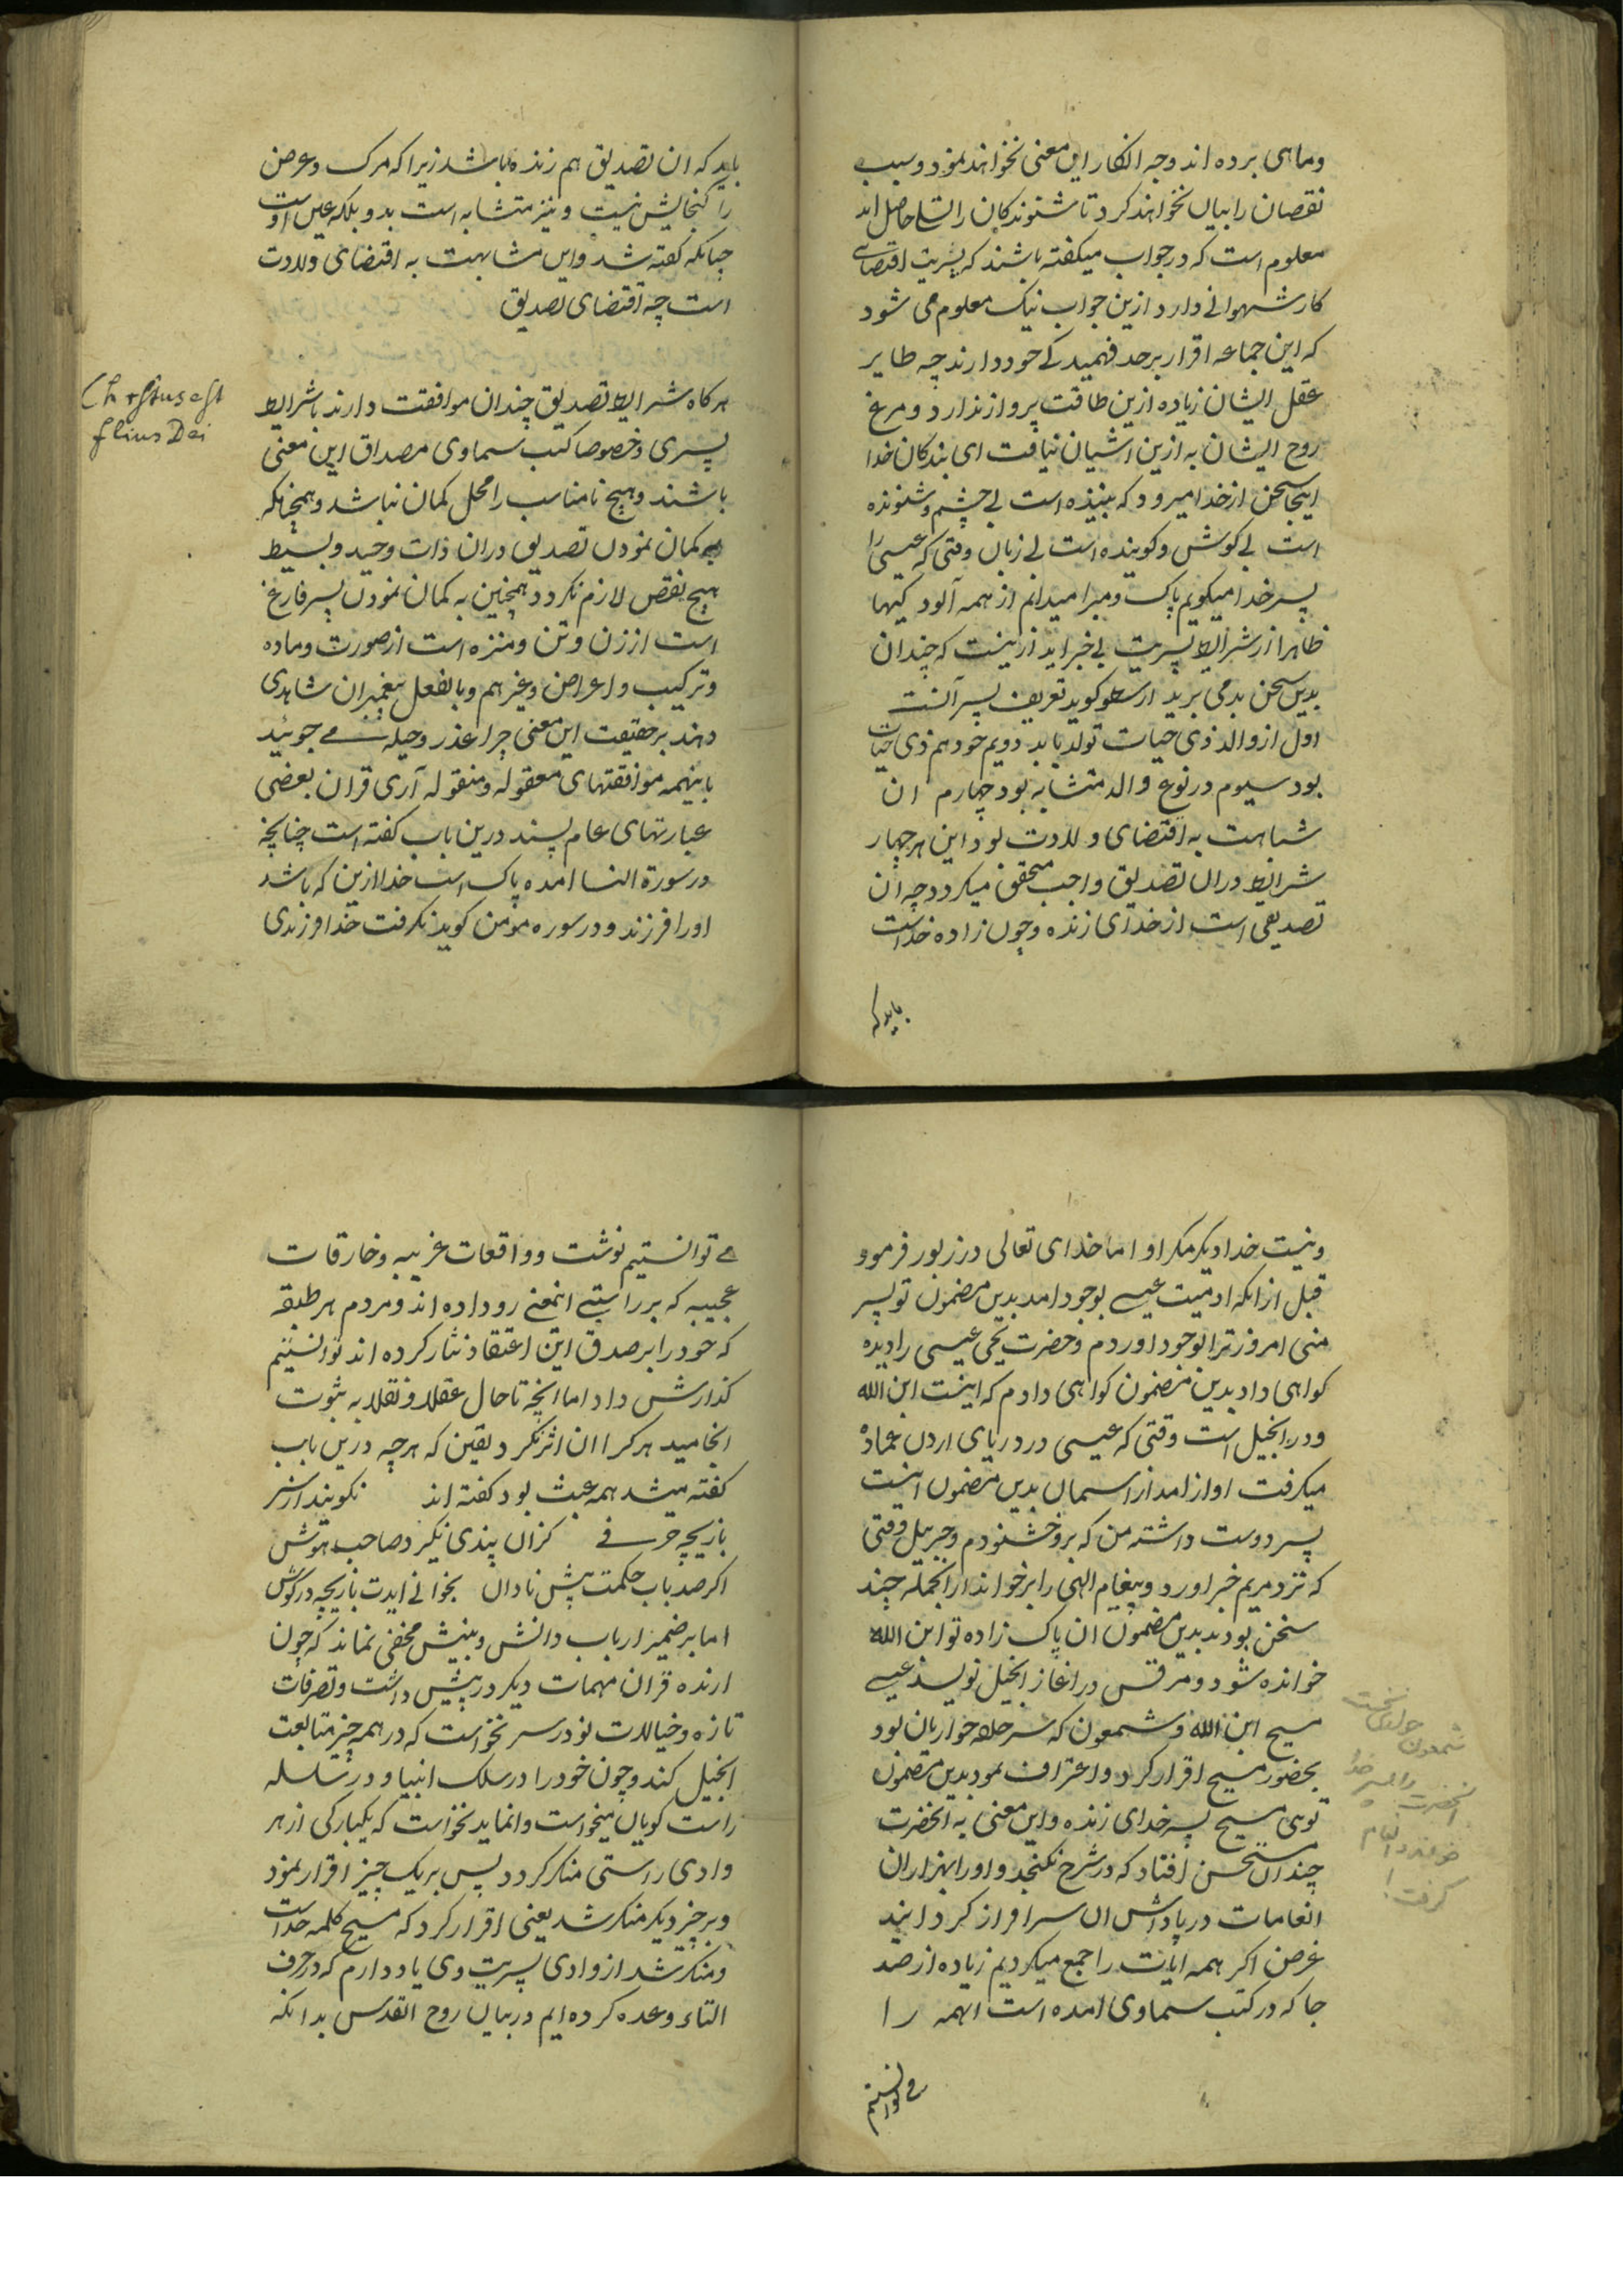 وماهی برده اند وجه انکار این معنی نخواهند نمود وسبب
نقصان را بیان نخواهند کرد تا شنوندکان را تسلی حاصل اید
معلوم است که در جواب میکفته باشند که پسریت اقتضای
کار شهوانی دارد ازین جواب نیک معلوم می شود
که این جماعه اقرار بر حد فهمیدکی خود دارند چه طایر
عقل ایشان زیاده ازین طاقت پرواز ندارد و مرغ
روح ایشان به ازین اشیان نیافت ای بندکان خدا
اینجا سخن از خدا میرود که بیننده است بی چشم وشنونده
است بی کوش وکوینده است بی زبان وقتی که عیسی را
پسر خدا میکویم پاک ومبرا میدانم از همه آلودکیها
ظاهرا از شرایط پسریت بی خبر اید ازینست که چندان
بدین سخن بد می برید ارسطو کوید تعریف پسر آنست
اول از والد ذی حیات تولد یابد دویم خود هم ذی حیات
بود سیوم در نوع والد متشابه بود چهارم ان
شباهت به اقتضای ولادت بود این هر چهار
شرایط دران تصدیق واجب متحقق میکردد چه ان
تصدیقی است از خدای زنده وچون زاده خداست
باید که
باید که ان تصدیق هم زنده باشد زیرا که مرک وعرض
را کنجایش نیست و نیز متشابه است بدو بلکه عین اوست
چنانکه کفته شد واین مشابهت به اقتضای ولادت
است چه اقتضای تصدیق
هرکاه شرایط تصدیق چندان موافقت دارند باشرایط
پسری وخصوصا کتب سماوی مصداق این معنی
باشند وهیچ نامناسب را محل کمان نباشد وهمچنانکه
به کمان نمودن تصدیق دران ذات وحید وبسیط
هیچ نقص لازم نکردد همچنین به کمان نمودن پسر فارغ
است از زن وتن ومنزه است از صورت وماده
وترکیب واعراض وغیرهم وبالفعل پیغمبران شاهدی
دهند بر حقیقت این معنی چرا عذر وحیله می جوئید
با اینهمه موافقتهای معقوله ومنقوله آری قران بعضی
عبارتهای عام پسند درین باب کفته است چنانچه
در سورة النسا امده پاک است خدا ازین که باشد
اورا فرزند و در سوره مؤمن کوید نکرفت خدا فرزندی
Christus est
filius Dei
ونیست خدا دیکر مکر او اما خدای تعالی در زبور فرمود
قبل ازانکه ادمیت عیسی بوجود امد بدین مضمون تو پسر
منی امروز ترا بوجود اوردم وحضرت یحیی عیسی را دیده
کواهی داد بدین مضمون کواهی دادم که اینست ابن الله
ودر انجیل است وقتی که عیسی در دریای اردن عماده
میکرفت اواز امد از اسمان بدین مضمون اینست
پسر دوست داشته من که برو خشنودم وجبریل وقتی
که نزد مریم خبر اورد وپیغام الهی را بر خواند ازانجمله چند
سخن بودند بدین مضمون ان پاک زاده تو ابن الله
خوانده شود ومرقس در اغاز انجیل نویسد عیسی
مسیح ابن الله وشمعون که سر حلقه حواریان بود
بحضور مسیح اقرار کرد واعتراف نمود بدین مضمون
توی مسیح پسر خدای زنده واین معنی به انحضرت
چندان مستحسن افتاد که در شرح نکنجد واورا بهزاران
انعامات در پاداش ان سرافراز کردانید
غرض اکر همه ایات را جمع میکردیم زیاده از صد
جا که در کتب سماوی امده است انهمه را
می توانستیم
شمعون
انحضرت را پسر خدا
کرفت
می توانستیم نوشت وواقعات غریبه وخارقات
عجیبه که بر راستی اینمعنی رو داده اند ومردم هر طبقه
که خود را بر صدق این اعتقاد نثار کرده اند توانستیم
کذارش داد اما انچه تا حال عقلا ونقلا به ثبوت
انجامید هر کرا ان اثر نکرد یقین که هر چه درین باب
کفته میشد همه عبث بود کفته اند نکویند از سر
بازیچه حرفی کزان پندی نکیرد صاحب هوش
اکر صد باب حکمت پیش نادان بخوانی ایدت بازیچه در کوش
اما بر ضمیر ارباب دانش وبینش مخفی نماند که چون
ارنده قران مهمات دیکر در پیش داشت وتصرفات
تازه وخیالات نو در سر نخواست که در همه چیز متابعت
انجیل کند وچون خود را در سلک انبیا ودر سلسله
راست کویان میخواست وانماید نخواست که یکبارکی از هر
وادی راستی منکر کردد پس بریک چیز اقرار نمود
وبر چیز دیکر منکر شد یعنی اقرار کرد که مسیح کلمه خداست
ومنکر شد از وادی پسریت وی یاد دارم که در حرف
التاء وعده کرده ایم در بیان روح القدس بدانکه